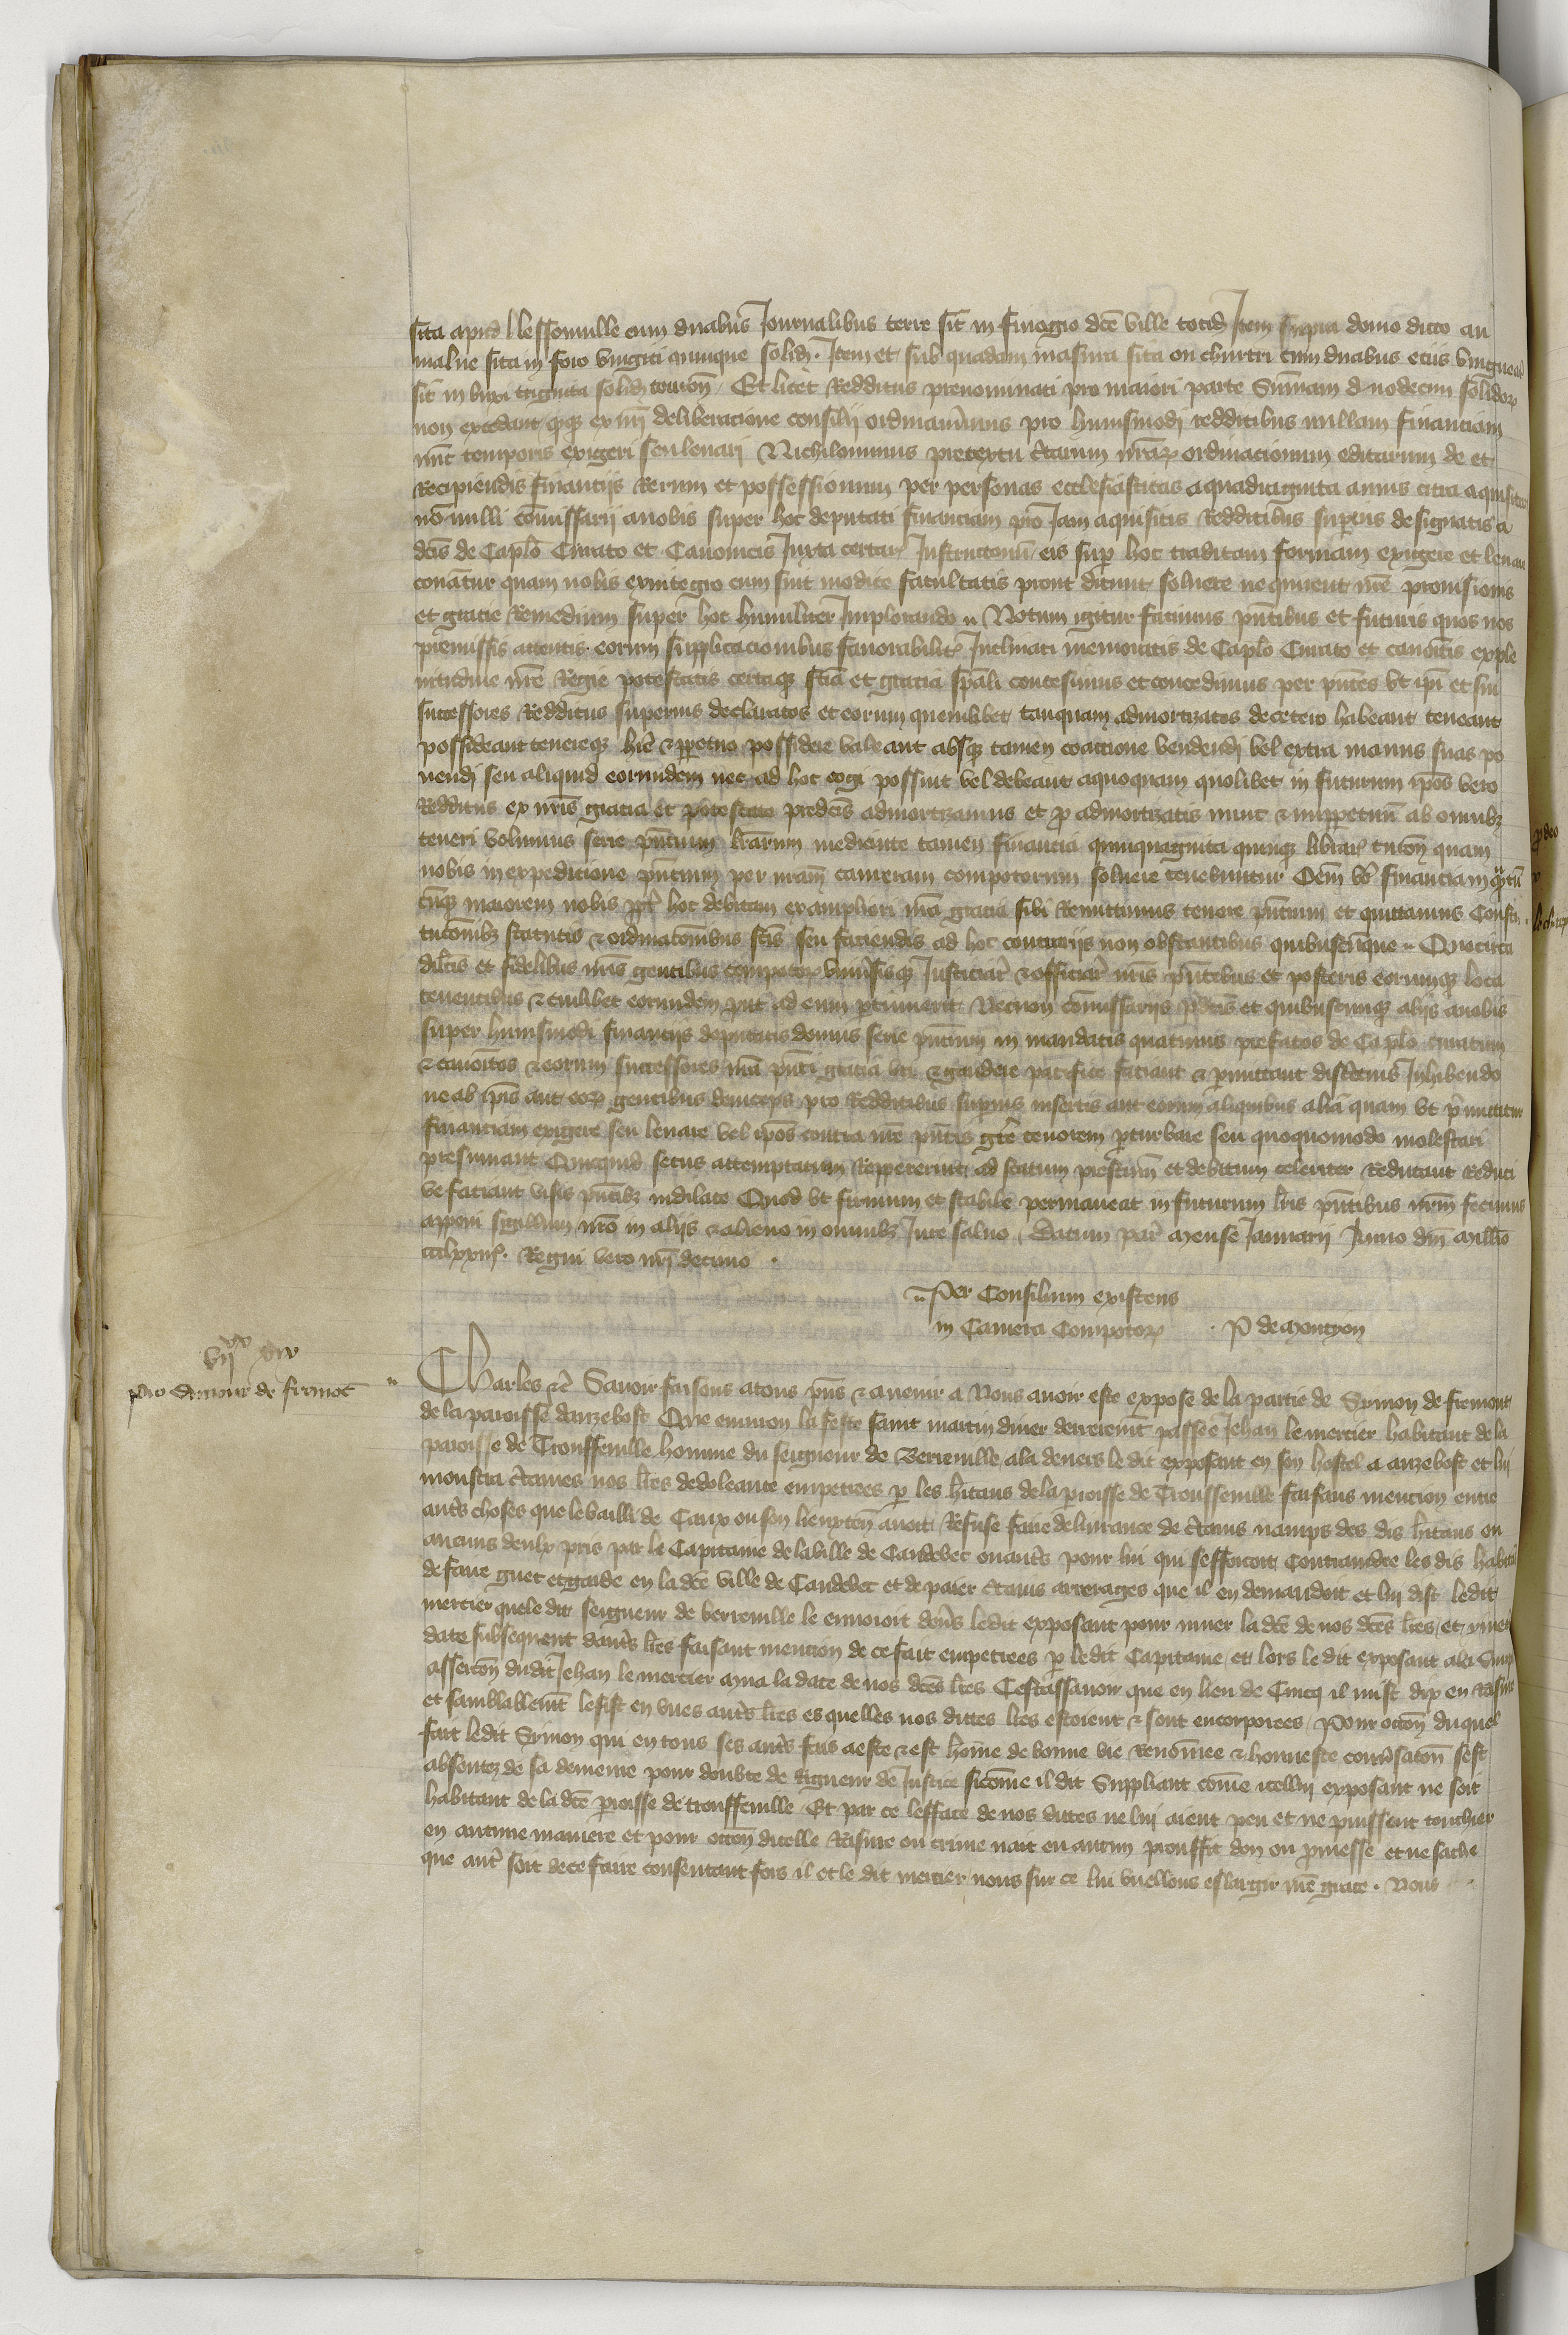 sita apud Lessonville cum duabus Jornalibus terre sit in finagio dce ville totid Item supra domo dicto au
malue sita in foro viginti quinque solid. Item et sub quadam masura sita ou churtri cum duabus
sit in buxi triginta solid turon Et licet Redditus prenominati pro maiori parte Summam duodecim solidor
non excedant qz ex nri deliberacione consilij ordinauimus pro huiusmodi redditibus nullam financiam
nunc temporis exigeri seu leuari Nichilominus pretextu ctarum nrar ordinacionum editarum de et
Recipiendis financijs Rerum et possessionum per personas ecclesiasticas a quadraginta annis citra aquisitar
nonulli comissarij a nobis super hoc deputati financiam pro Jam aquisitis Redditibus superius designatis a
dcis de Caplo Curato et Canonicis Juxta certar Instructonu eis sup hoc traditam formam exigere et leuare
conantur quam nobis exintegro cum sint modice facultatis prout dicunt soluere nequirent nre prouisionis
et gracie Remedium super hoc humiliter Implorando Notum igitur facimus pntibus et futuris quos nos
premissis attentis eorum supplicacionibus fauorabilit Inclinati memoratis de Caplo Curato et canoicis exple
nitudine nre Regie potestatis certaqz scia et gracia spali concessimus et concedimus per pntes vt ipi et sui
successores Redditus superius declaratos et eorum quemlibet tanquam admortizatos decetero habeant teneant
possideant tenereqz hre & ppetuo possidere valeant absqz tamen coactione vendendi vel extra manus suas po
nendi seu aliquid eorumdem nec ad hoc cogi possint vel debeant aquoquam quolibet in futurum ipos vero
Redditus ex nris gracia et potestate predcis admortizamus et p admortizatis nunc & inppetuu ab omnibz
teneri volumus serie pntium lrarum mediante tamen financia quinquaginta quinqz librar turon quam
nobis in expedicione pntium per nram cameram compotorum soluere tenebuntur Oem vo financiam quatu
cuqz maiorem nobis ppt hoc debitam ex ampliori nra gracia sibi Remittimus tenore pntium et quittamus Consti
tucoibz statutis & ordinacoibus fcis seu faciendis ad hoc contrarijs non obstantibus quibuscunque Quocirca
dilcis et fidelibus nris gentibus compotor vniusisqz Justiciar & officiar nris pntibus et posteris eorumqz loca
tenentibus & cuilibet eorumdem put ad eum ptinuerit Necnon comissarijs pdcis et quibuscumqz alijs a nobis
super huiusmodi financijs deputatis domus serie pntium in mandatis quatinus prefatos de Caplo curatum
& canoicos & eorum successores nra pnti gracia vti & gaudere pacifice faciant & pmittant districtius Inhibendo
ne ab ipis aut eor gentibus deinceps pro Redditibus superius insertis aut eorum aliquibus alia quam vt pmittitur
financiam exigere seu leuare vel ipos contra nre pntis gre tenorem pturbare seu quoquomodo molestari
presumant Quicquid secus attemptatum Reppererint ad statum pristinu et debitum celeriter Reducant Reduci
ve faciant visis pntibz indilate Quod vt firmum et stabile permaneat in futurum lris pntibus nrm fecimus
apponi sigillum nro in alijs & alieno in omnibz Jure saluo Datum par Mense Januarij Anno dni millio
ccclxxiij. Regni vero nri decimo .
Per Consilium existens
in Camera Compotor . P de Montyon
vijxx xiv
pro Simone de fremot
Charles &c Sauoir faisons atous pns & auenir a Nous auoir este expose de la partie de Symon de fremont
de la paroisse danzebost Que enuiron la feste saint martin diuer derreremt passee Jehan le mercier habitant de la
paroisse de Trouffeuille homme du seigneur de Berreuille ala deuers le dit exposant en son hostel a anzebost et lui
monstra ctaines nos lres dedoleance empetrees p les hitans dela proisse de Trouffeuille faisans mencion entre
auts choses que le bailli de Caux ou son lieuxten auoit Refuse faire deliurance de ctains namps des dis hitans ou
aucuns deulx pris par le Capitaine de laville de Caudebec ou auts pour lui qui sefforcoit Contraindre les dis habitas
de faire guet et garde en la dce ville de Caudebec et de paier ctains arrerages que il en demandoit et lui dist le dit
mercier quele dit seigneur de berreuille le enuoioit deus le dit exposant pour muer la dce de nos dces lres et
date subsequent dauts lres faisant mencion de ce fait empetrees p le dit Capitaine et lors le dit exposant ala
assercon dudit Jehan le mercier mua la date de nos dces lres Cestassauoir que en lieu de Cincq il mist dix en Rasure
et samblablemt lefist en vnes auts lres es quelles nos dittes lres estoient & sont encorporees Pour occon duquel
fait ledit Symon qui en tous ses auts fais aeste & est home de bonne vie Renomee & honneste conusaton sest
absentez de sa demeure pour doubte de Rigueur de Justice sicome il dit Suppliant come icellui exposant ne soit
habitant de la dce proisse de trouffeuille Et par ce lefface de nos dittes ne lui aient peu et ne puissent touchier
en aucune maniere et pour occon dicelle Rasure ou crime nait eu aucun prouffit don ou pmesse et ne sache
que aut soit de ce faire consentant fors il et le dit mercier nous sur ce lui vuellons eslargir nre grace . Nous